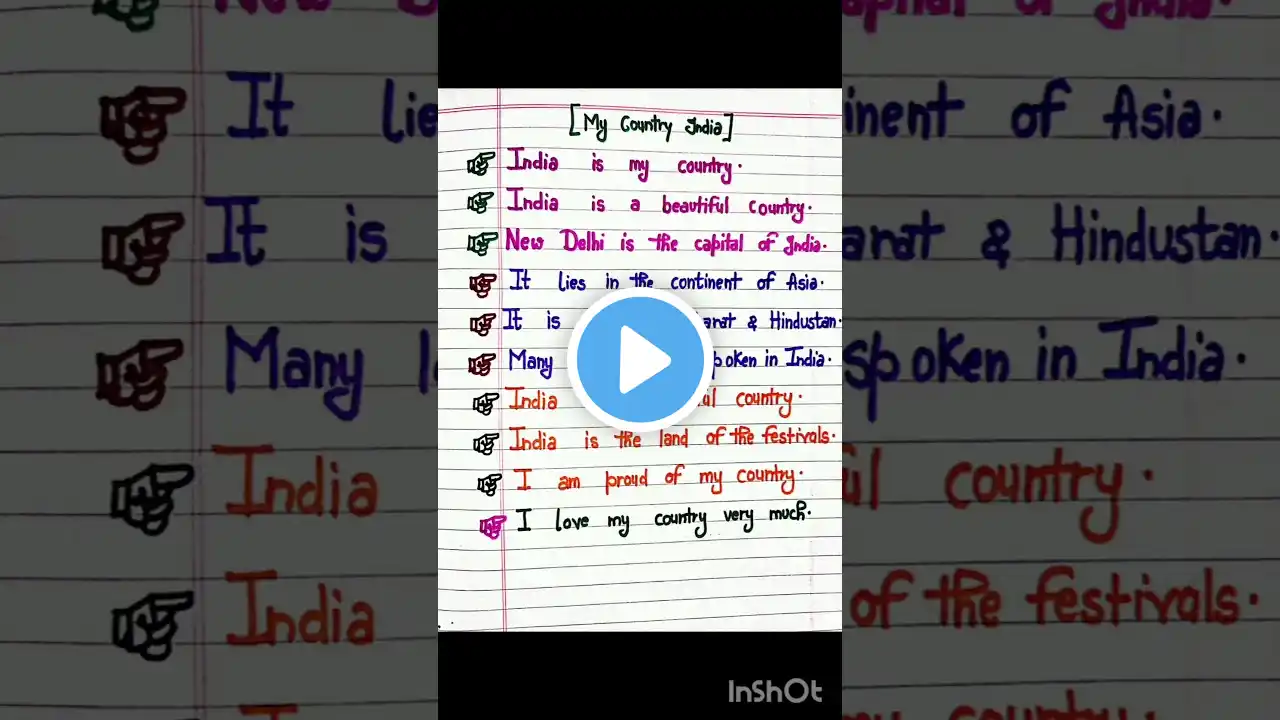 [My Country India]
India is my country.
India is a beautiful country.
New Delhi is the capital of India.
It lies in the continent of Asia.
It is arat & Hindustan.
Many spoken in India.
India country.
India is the land of the festivals.
I am proud of my country.
I love my country very much.
InShOt